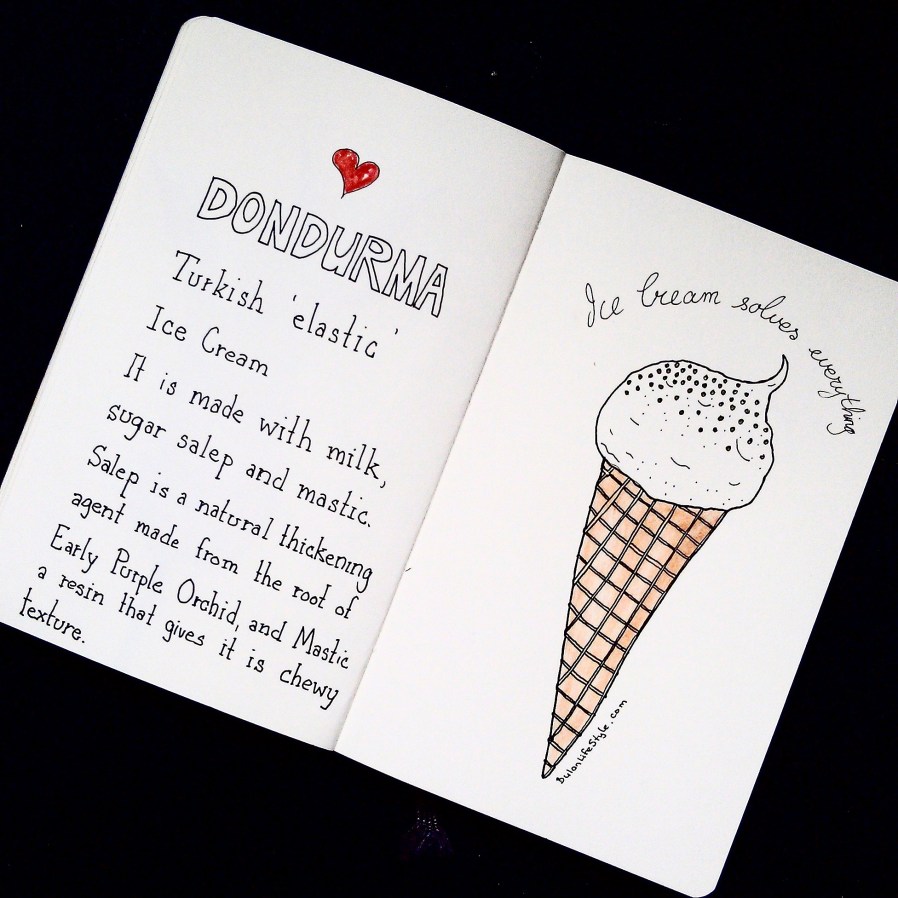 DONDURMA
Turkish 'elastic'
Ice Cream
It is made with milk,
sugar salep and mastic.
Salep is a natural thickening
agent made from the root of
Early Purple Orchid, and Mastic
a resin that gives it is chewy
texture.
Ice Cream solves everything
DulonLifeStyle.com